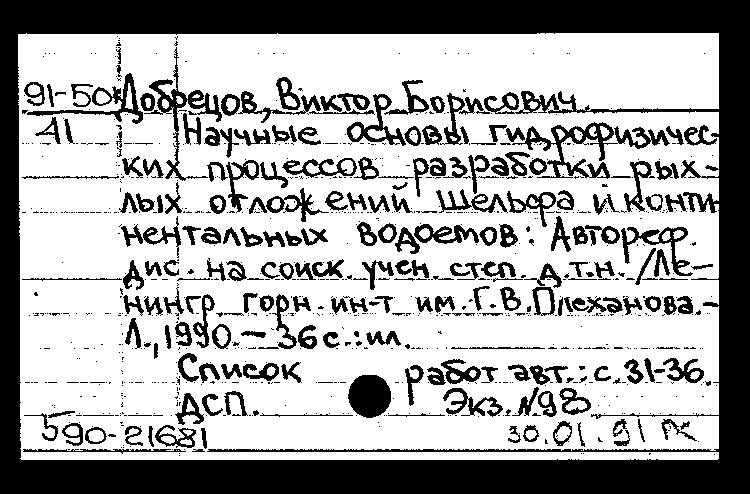 91-50* Добрецов, Виктор Борисович.
41 Научные основы гидрофизичес-
ких процессов разработки рых-
лых отложений шельфа и конти-
нентальных водоемов: Автореф.
дис. на соиск. учен. степ. д.т.н. /Ле-
нингр. горн. ин-т им. Г.В.Плеханова.-
Л., 1990.- 36с.:ил.
Список работ авт.: с.31-36.
ДСП. Экз.№98
590-21681 30.01.91